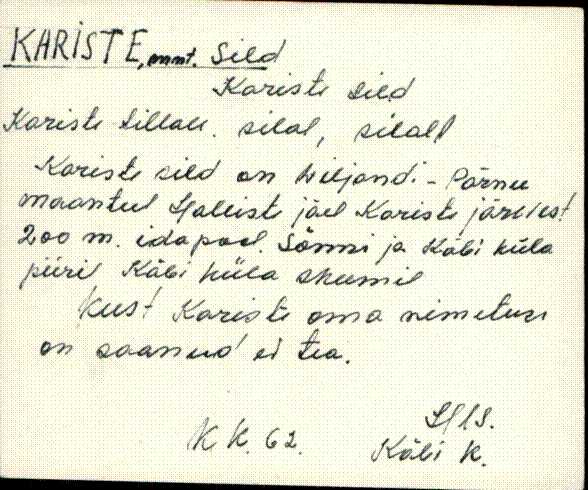 KARISTE, mnt. Sild
Kariste sild
Kariste sillale. silal, silalt
Kariste sild on Viljandi - Pärnu
maanteel Halliste jõel Kariste järvest
200 m. idapool. Sõmmi ja Käbi küla
piiril Käbi küla skeemil
Kust Kariste oma nimetuse
on saanud ei tea.
Hls.
KK. 62. Käbi k.